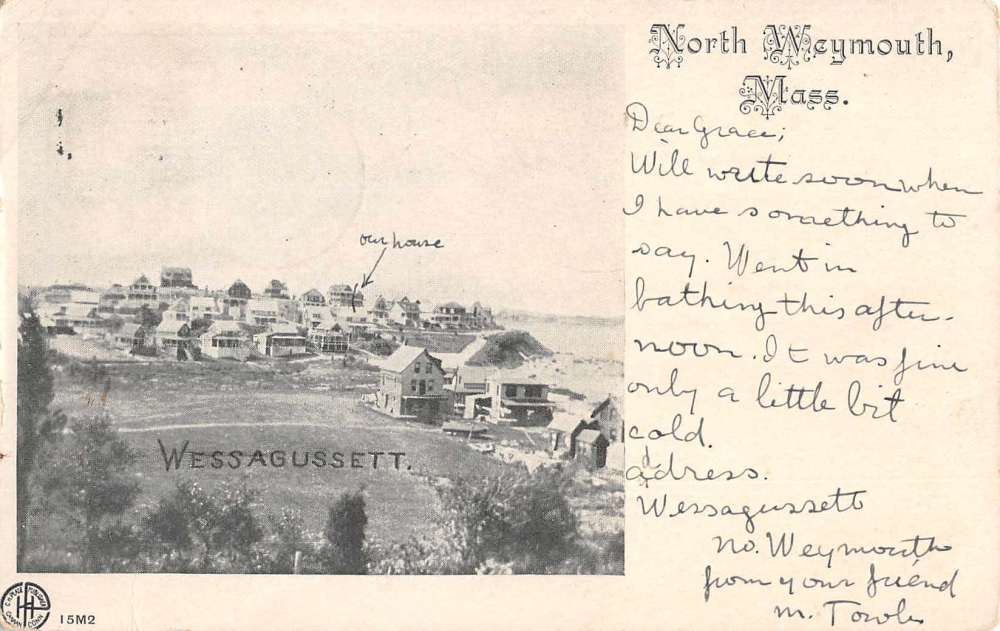 North Weymouth,
Mass.
Dear Grace;
Will write soon when
I have something to
say. Went in
bathing this after-
noon. It was fine
only a little bit
cold.
adress.
Wessagussett
No. Weymouth
from your friend
M. Towle
our house
WESSAGUSSETT.
15M2